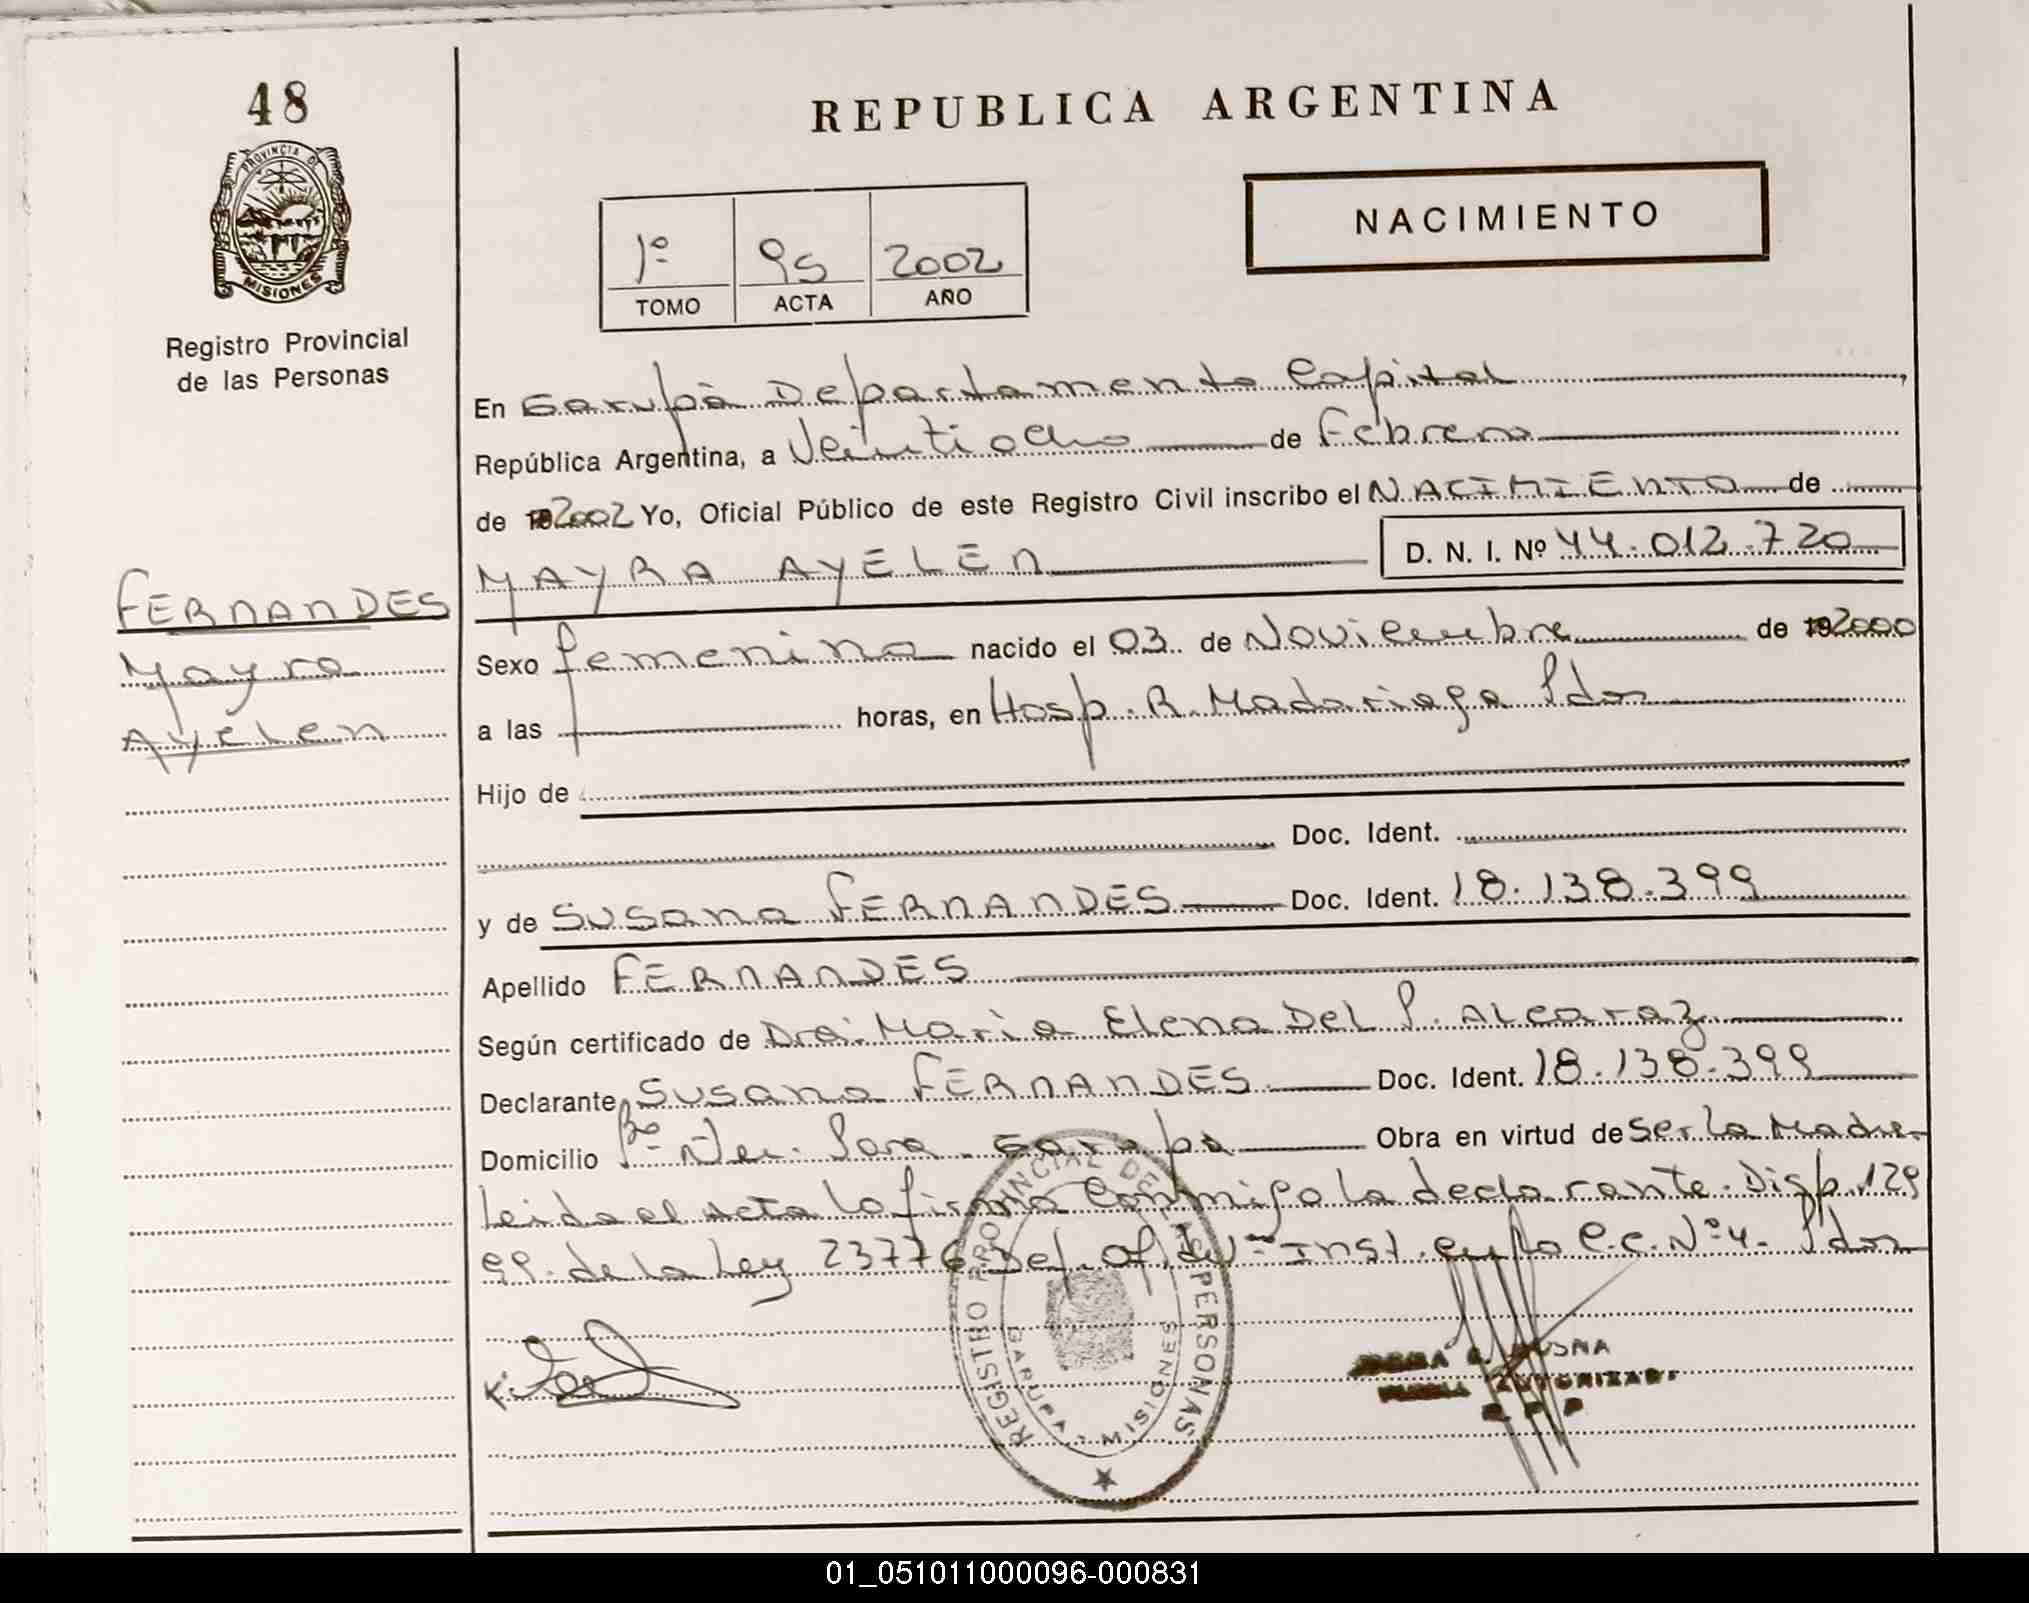 48
PROVINCIA DE
MISIONES
Registro Provincial
de las Personas
FERNANDES
Mayra
Ayelen
REPUBLICA ARGENTINA
NACIMIENTO
1º 95 2002
TOMO ACTA AÑO
En Garupá Departamento Capital
República Argentina, a Veintiocho de Febrero
de 2002 Yo, Oficial Público de este Registro Civil inscribo el NACIMIENTO de
MAYRA AYELEN D. N. I. Nº 44.012.720
Sexo femenino nacido el 03 de Noviembre de 2000
a las horas, en Hosp. R. Madariaga Pdas
Hijo de
Doc. Ident.
y de Susana FERNANDES Doc. Ident. 18.138.399
Apellido FERNANDES
Según certificado de Dra. Maria Elena Del P. Alcaraz
Declarante Susana FERNANDES Doc. Ident. 18.138.399
Domicilio Garupa Obra en virtud de Ser la Madre
Leida el acta la firma conmigo la declarante. Disp. 129
99. de la Ley 23776 Def. Of. de 1ra Inst. en lo C.C. Nº 4. Pdas
REGISTRO PROVINCIAL DE LAS PERSONAS
GARUPA - MISIONES
01_051011000096-000831